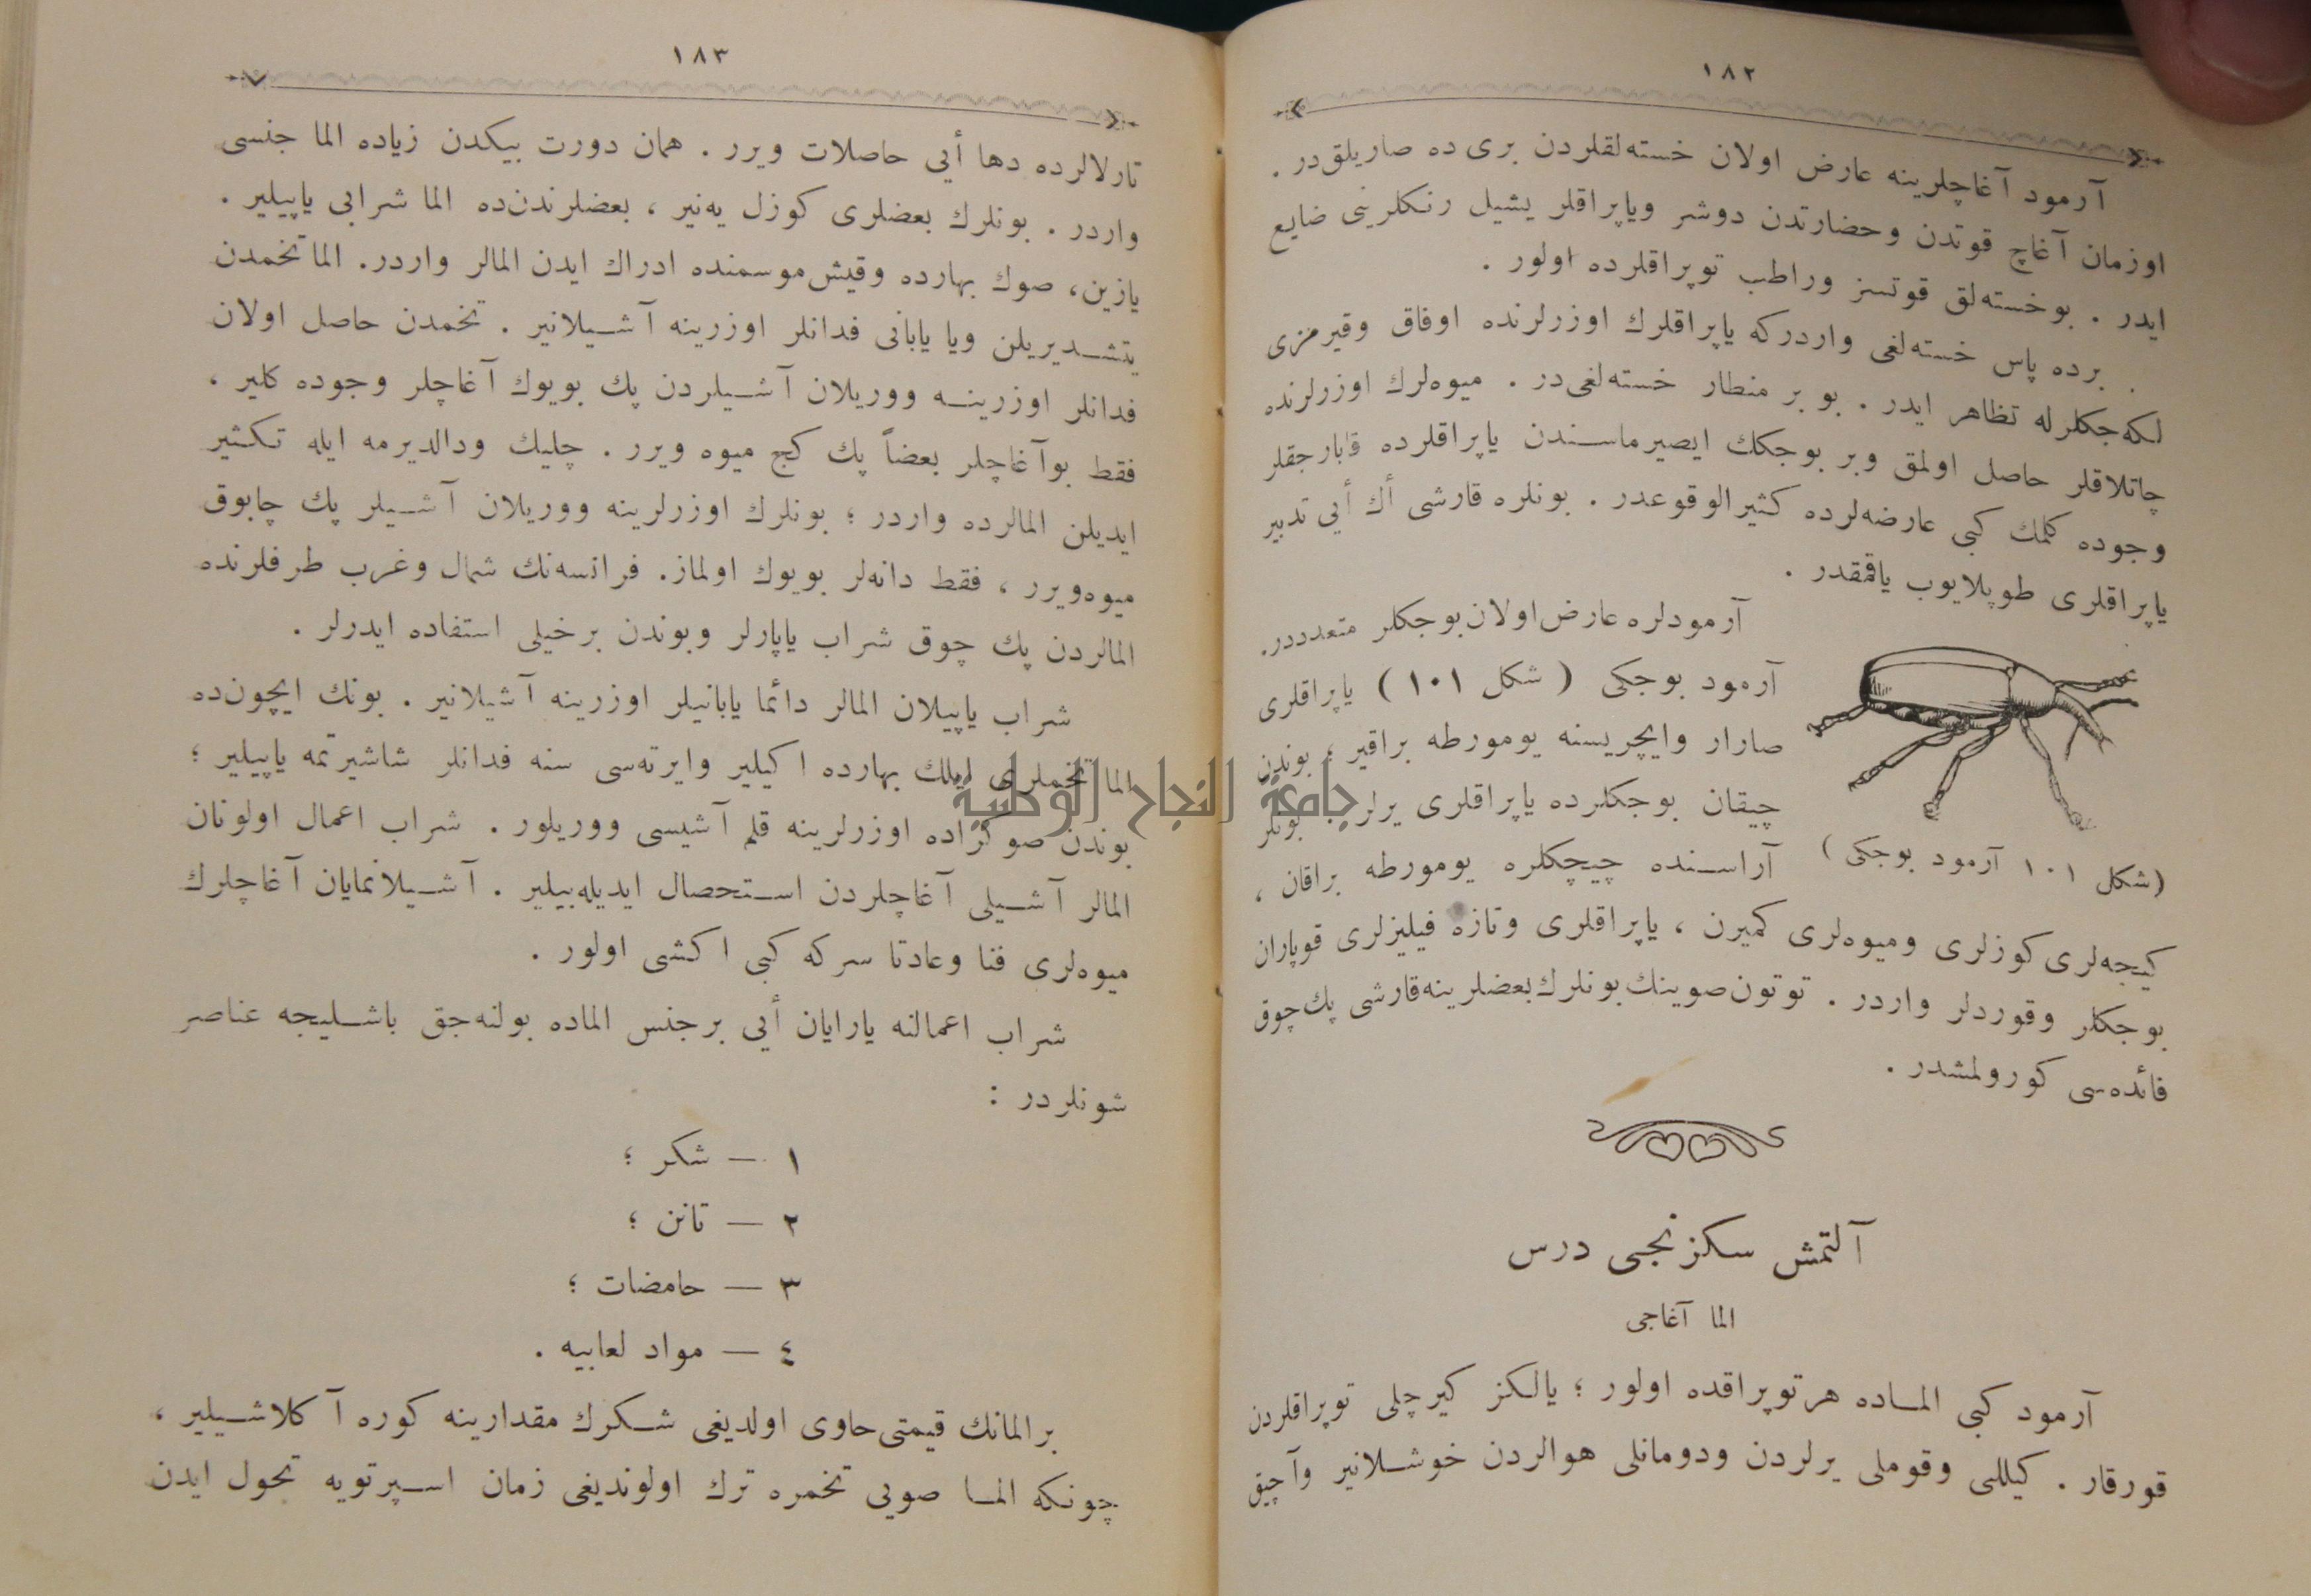 ١٨٢
آرمود آغاچلرينه عارض اولان خسته‌لقلردن برى ده صاريلق‌در .
اوزمان آغاچ قوتدن وحضارتدن دوشر وياپراقلر يشيل رنكلرينى ضايع
ايدر . بوخسته‌لق قوتسز وراطب توپراقلرده اولور .
برده پاس خسته‌لغى واردركه ياپراقلرك اوزرلرنده اوفاق وقيرمزى
لكه‌جكلرله تظاهر ايدر . بو بر منطار خسته‌لغى‌در . ميوه‌لرك اوزرلرنده
چاتلاقلر حاصل اولمق وبر بوجكك ايصيرماسندن ياپراقلرده قابارجقلر
وجوده كلمك كبى عارضه‌لرده كثيرالوقوعدر . بونلره قارشى أك أيى تدبير
ياپراقلرى طوپلايوب ياقمقدر .
آرمودلره عارض‌اولان‌بوجكلر متعدددر.
آرمود بوجكى ( شكل ١٠١ ) ياپراقلرى
صارار وايچريسنه يومورطه براقير ؛ بوندن
چيقان بوجكلرده ياپراقلرى يرلر . بونلر
آراسنده چيچكلره يومورطه براقان ،
(شكل ١٠١ آرمود بوجكى)
كيجه‌لرى كوزلرى وميوه‌لرى كميرن ، ياپراقلرى وتازه فيليزلرى قوپاران
بوجكلر وقوردلر واردر . توتون‌صوينك‌بونلرك‌بعضلرينه‌قارشى پك‌چوق
فائده‌سى كورولمشدر .
آلتمش سكزنجى درس
الما آغاجى
آرمود كبى المــاده هرتوپراقده اولور ؛ يالكز كيرچلى توپراقلردن
قورقار . كيللى وقوملى يرلردن ودومانلى هوالردن خوشلانير وآچيق
١٨٣
تارلالرده دها أيى حاصلات ويرر . همان دورت بيكدن زياده الما جنسى
واردر . بونلرك بعضلرى كوزل يه‌نير ، بعضلرندن‌ده الما شرابى ياپيلير .
يازين، صوك بهارده وقيش‌موسمنده ادراك ايدن المالر واردر. الماتخمدن
يتشديريلن ويا يابانى فدانلر اوزرينه آشيلانير . تخمدن حاصل اولان
فدانلر اوزرينه ووريلان آشيلردن پك بويوك آغاچلر وجوده كلير ،
فقط بوآغاچلر بعضاً پك كج ميوه ويرر . چليك ودالديرمه ايله تكثير
ايديلن المالرده واردر ؛ بونلرك اوزرلرينه ووريلان آشيلر پك چابوق
ميوه‌ويرر ، فقط دانه‌لر بويوك اولماز. فرانسه‌نك شمال وغرب طرفلرنده
المالردن پك چوق شراب ياپارلر وبوندن برخيلى استفاده ايدرلر .
شراب ياپيلان المالر دائما يابانيلر اوزرينه آشيلانير . بونك ايچون‌ده
الما تخملرى ايلك بهارده اكيلير وايرته‌سى سنه فدانلر شاشيرتمه ياپيلير ؛
بوندن صوكراده اوزرلرينه قلم آشيسى ووريلور . شراب اعمال اولونان
المالر آشيلى آغاچلردن استحصال ايديله‌بيلير . آشيلانمايان آغاچلرك
ميوه‌لرى فنا وعادتا سركه كبى اكشى اولور .
شراب اعمالنه يارايان أيى برجنس الماده بولنه‌جق باشليجه عناصر
شونلردر :
١ — شكر ؛
٢ — تانن ؛
٣ — حامضات ؛
٤ — مواد لعابيه .
برالمانك قيمتى‌حاوى اولديغى شكرك مقدارينه كوره آكلاشيلير ،
چونكه المـا صويى تخمره ترك اولونديغى زمان اسپرتويه تحول ايدن
جامعة النجاح الوطنية